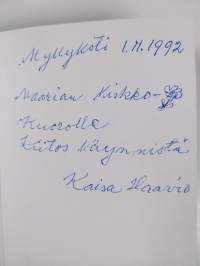 Myllykoti 1.11.1992
Maarian Kirkko-
Kuorolle
Kiitos käynnistä
Kaisa Haavio